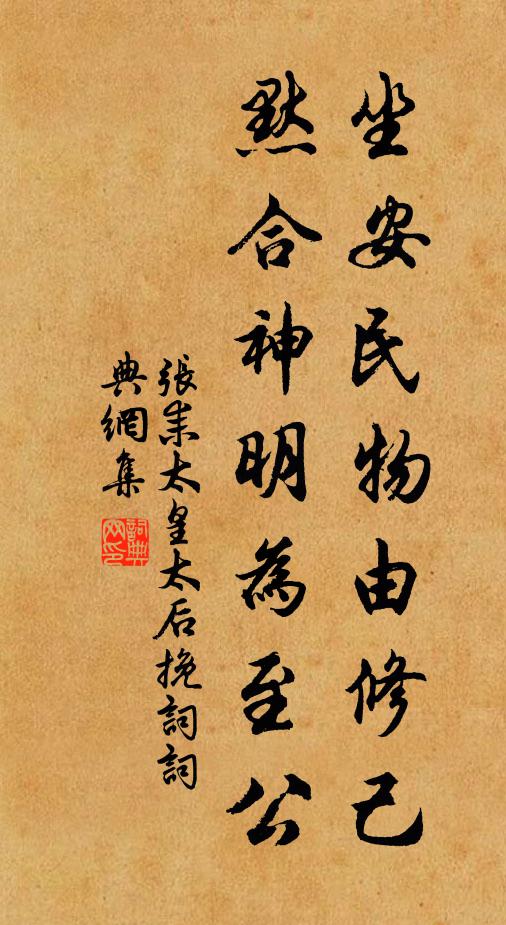 坐安民物由修己
默合神明為至公
張耒太皇太后挽詞詞
典網集
詞典網印